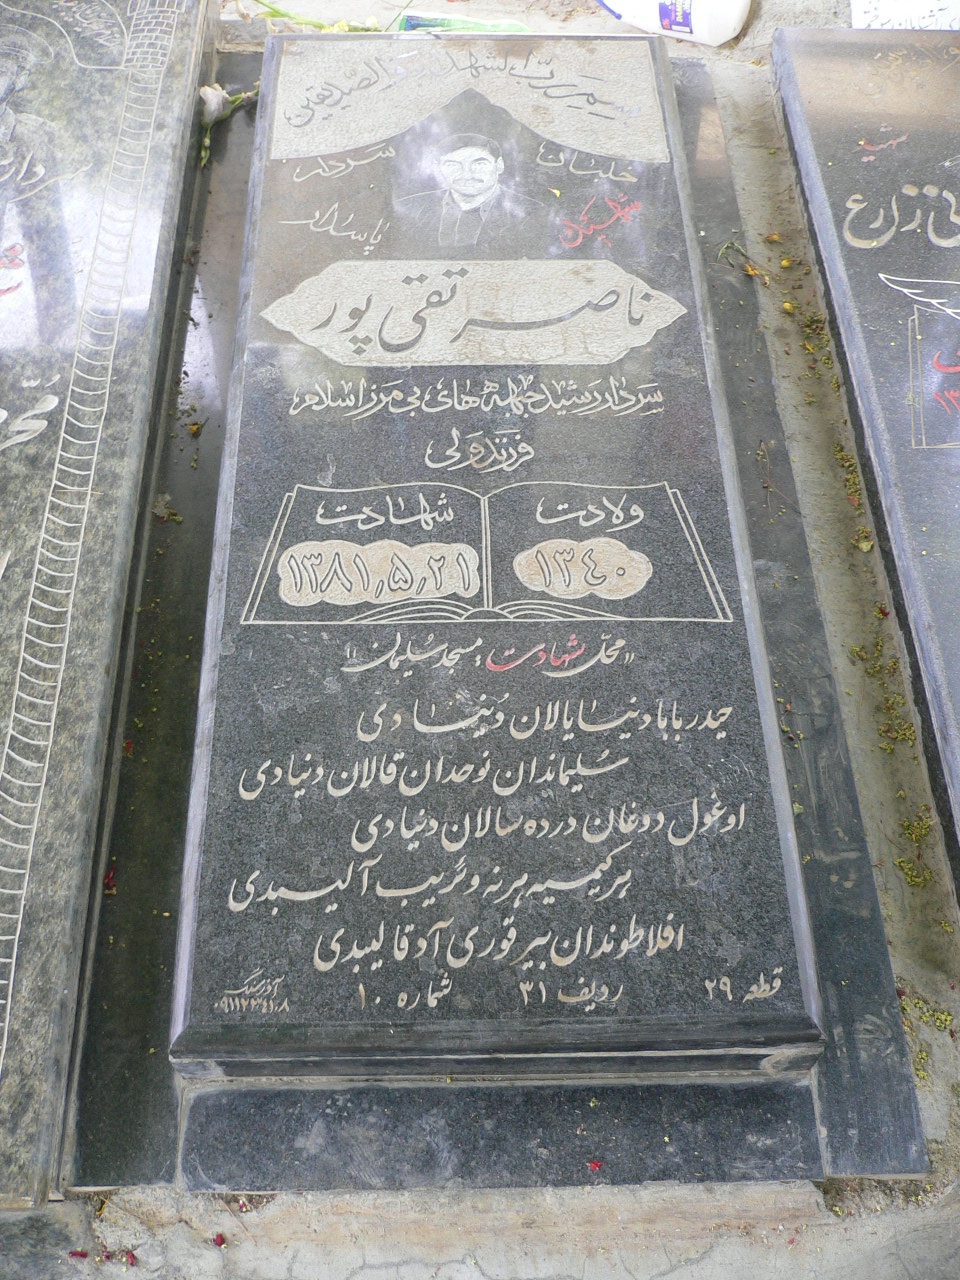 بسم رب الشهداء و الصدیقین
خلبان
سردار
شهید
پاسدار
ناصر تقی پور
سردار رشید جبهه های بی مرز اسلام
فرزند ولی
ولادت
شهادت
۱۳۴۰
۱۳۸۱,۵,۲۱
"محل شهادت؛ مسجد سلیمان"
حیدر بابا دنیا یالان دنیادی
سلیماندان نوحدان قالان دنیادی
اوغول دوغان درده سالان دنیادی
هر کیمسیه هر نه وئریب آلیبدی
افلاطوندان بیر قوری آد قالیبدی
قطعه ۲۹ ردیف ۳۱ شماره ۱۰
زارع